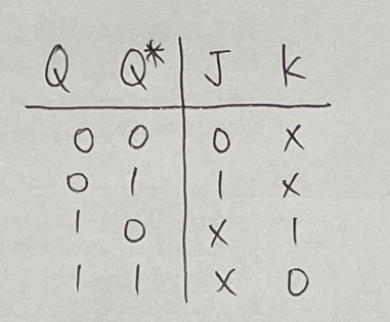 Q Q* J K
0 0 0 X
0 1 1 X
1 0 X 1
1 1 X 0